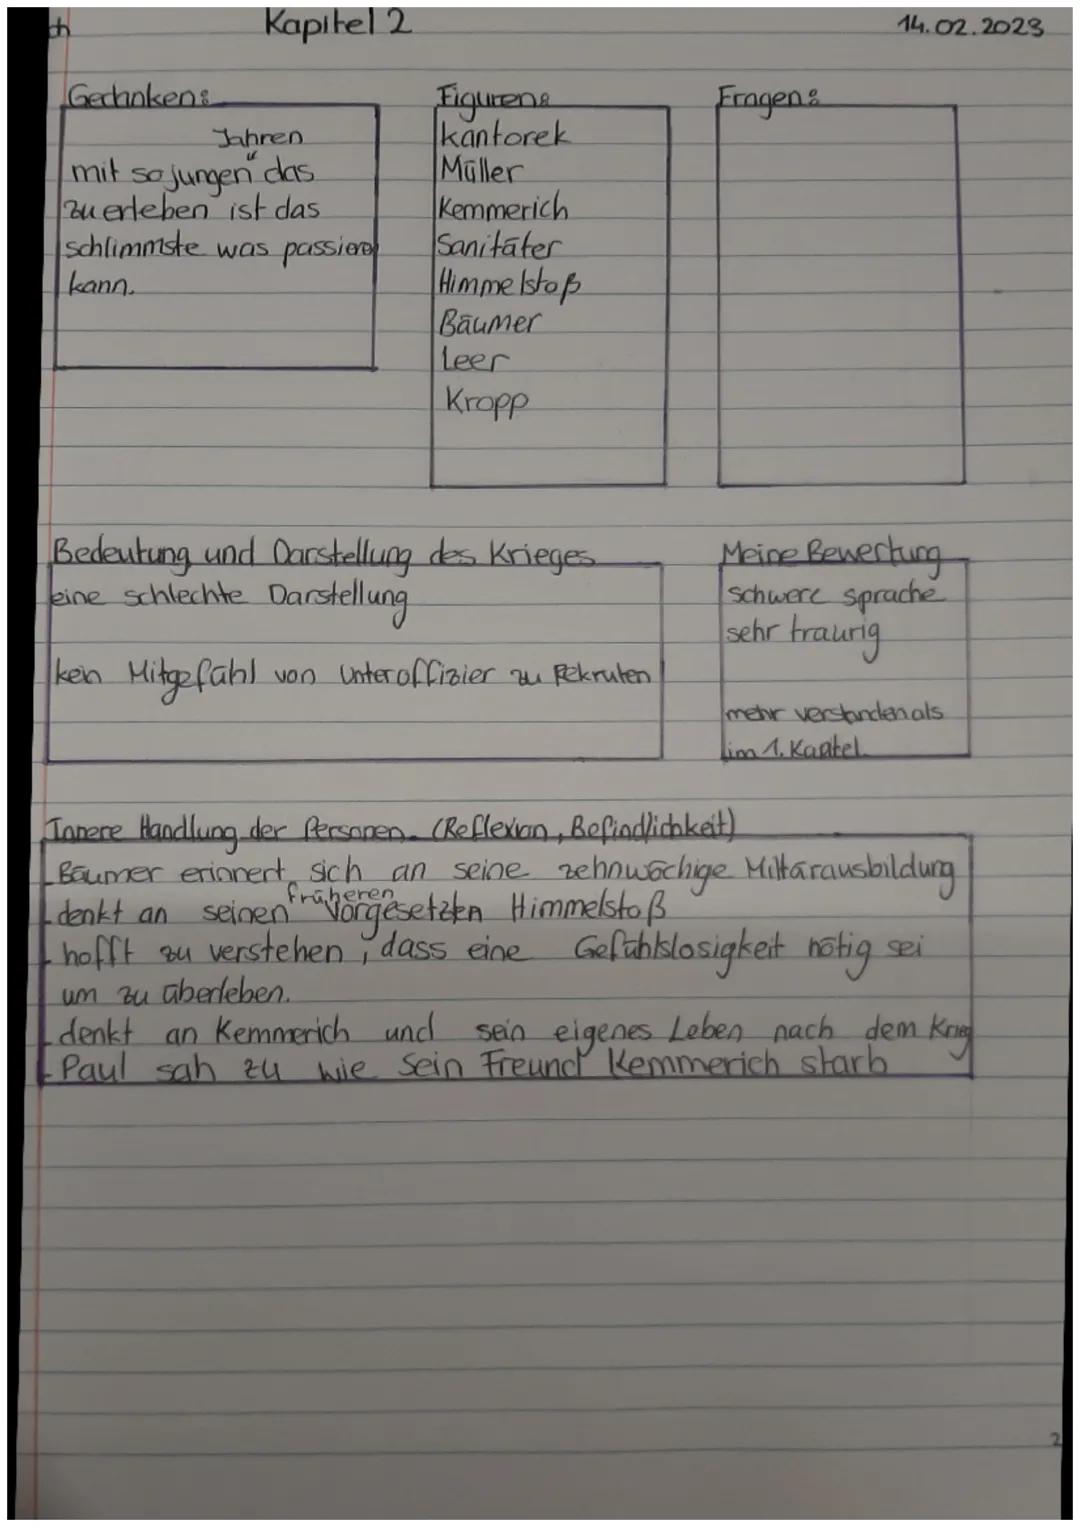 Kapitel 2
14.02.2023
Gedanken:
Jahren
mit so jungen " das
zu erleben ist das
schlimmste was passieren
kann.
Figuren:
Kantorek
Müller
Kemmerich
Sanitäter
Himmelstoß
Bäumer
Leer
Kropp
Fragen:
Bedeutung und Darstellung des Krieges
eine schlechte Darstellung
kein Mitgefühl von Unteroffizier zu Rekruten
Meine Bewertung
schwere sprache
sehr traurig
mehr verstanden als
im 1. Kapitel.
Innere Handlung der Personen. (Reflexion, Befindlichkeit)
- Bäumer erinnert sich an seine zehnwöchige Militärausbildung
früheren
- denkt an seinen Vorgesetzten Himmelstoß
- hofft zu verstehen, dass eine Gefühlslosigkeit nötig sei
um zu überleben.
- denkt an Kemmerich und sein eigenes Leben nach dem Krieg
- Paul sah zu wie sein Freund Kemmerich starb
2